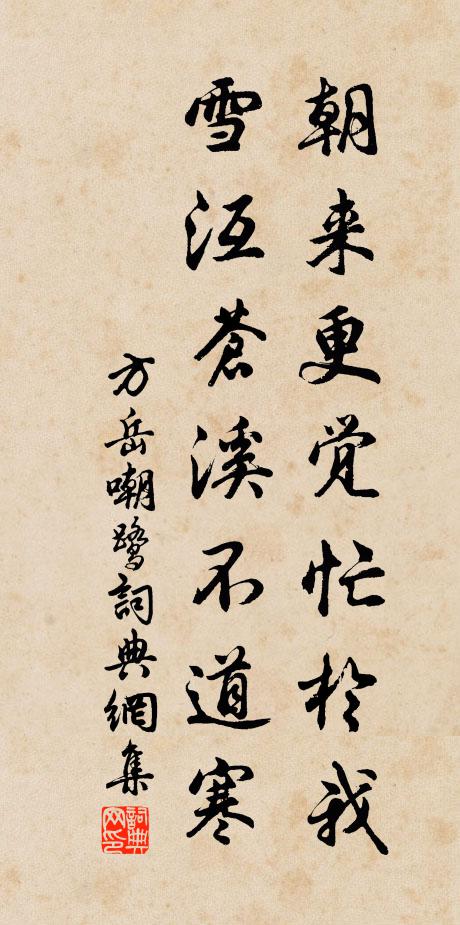 朝来更觉忙於我
雪沍蒼溪不道寒
方岳嘲鹭詞典網集
詞典
网印